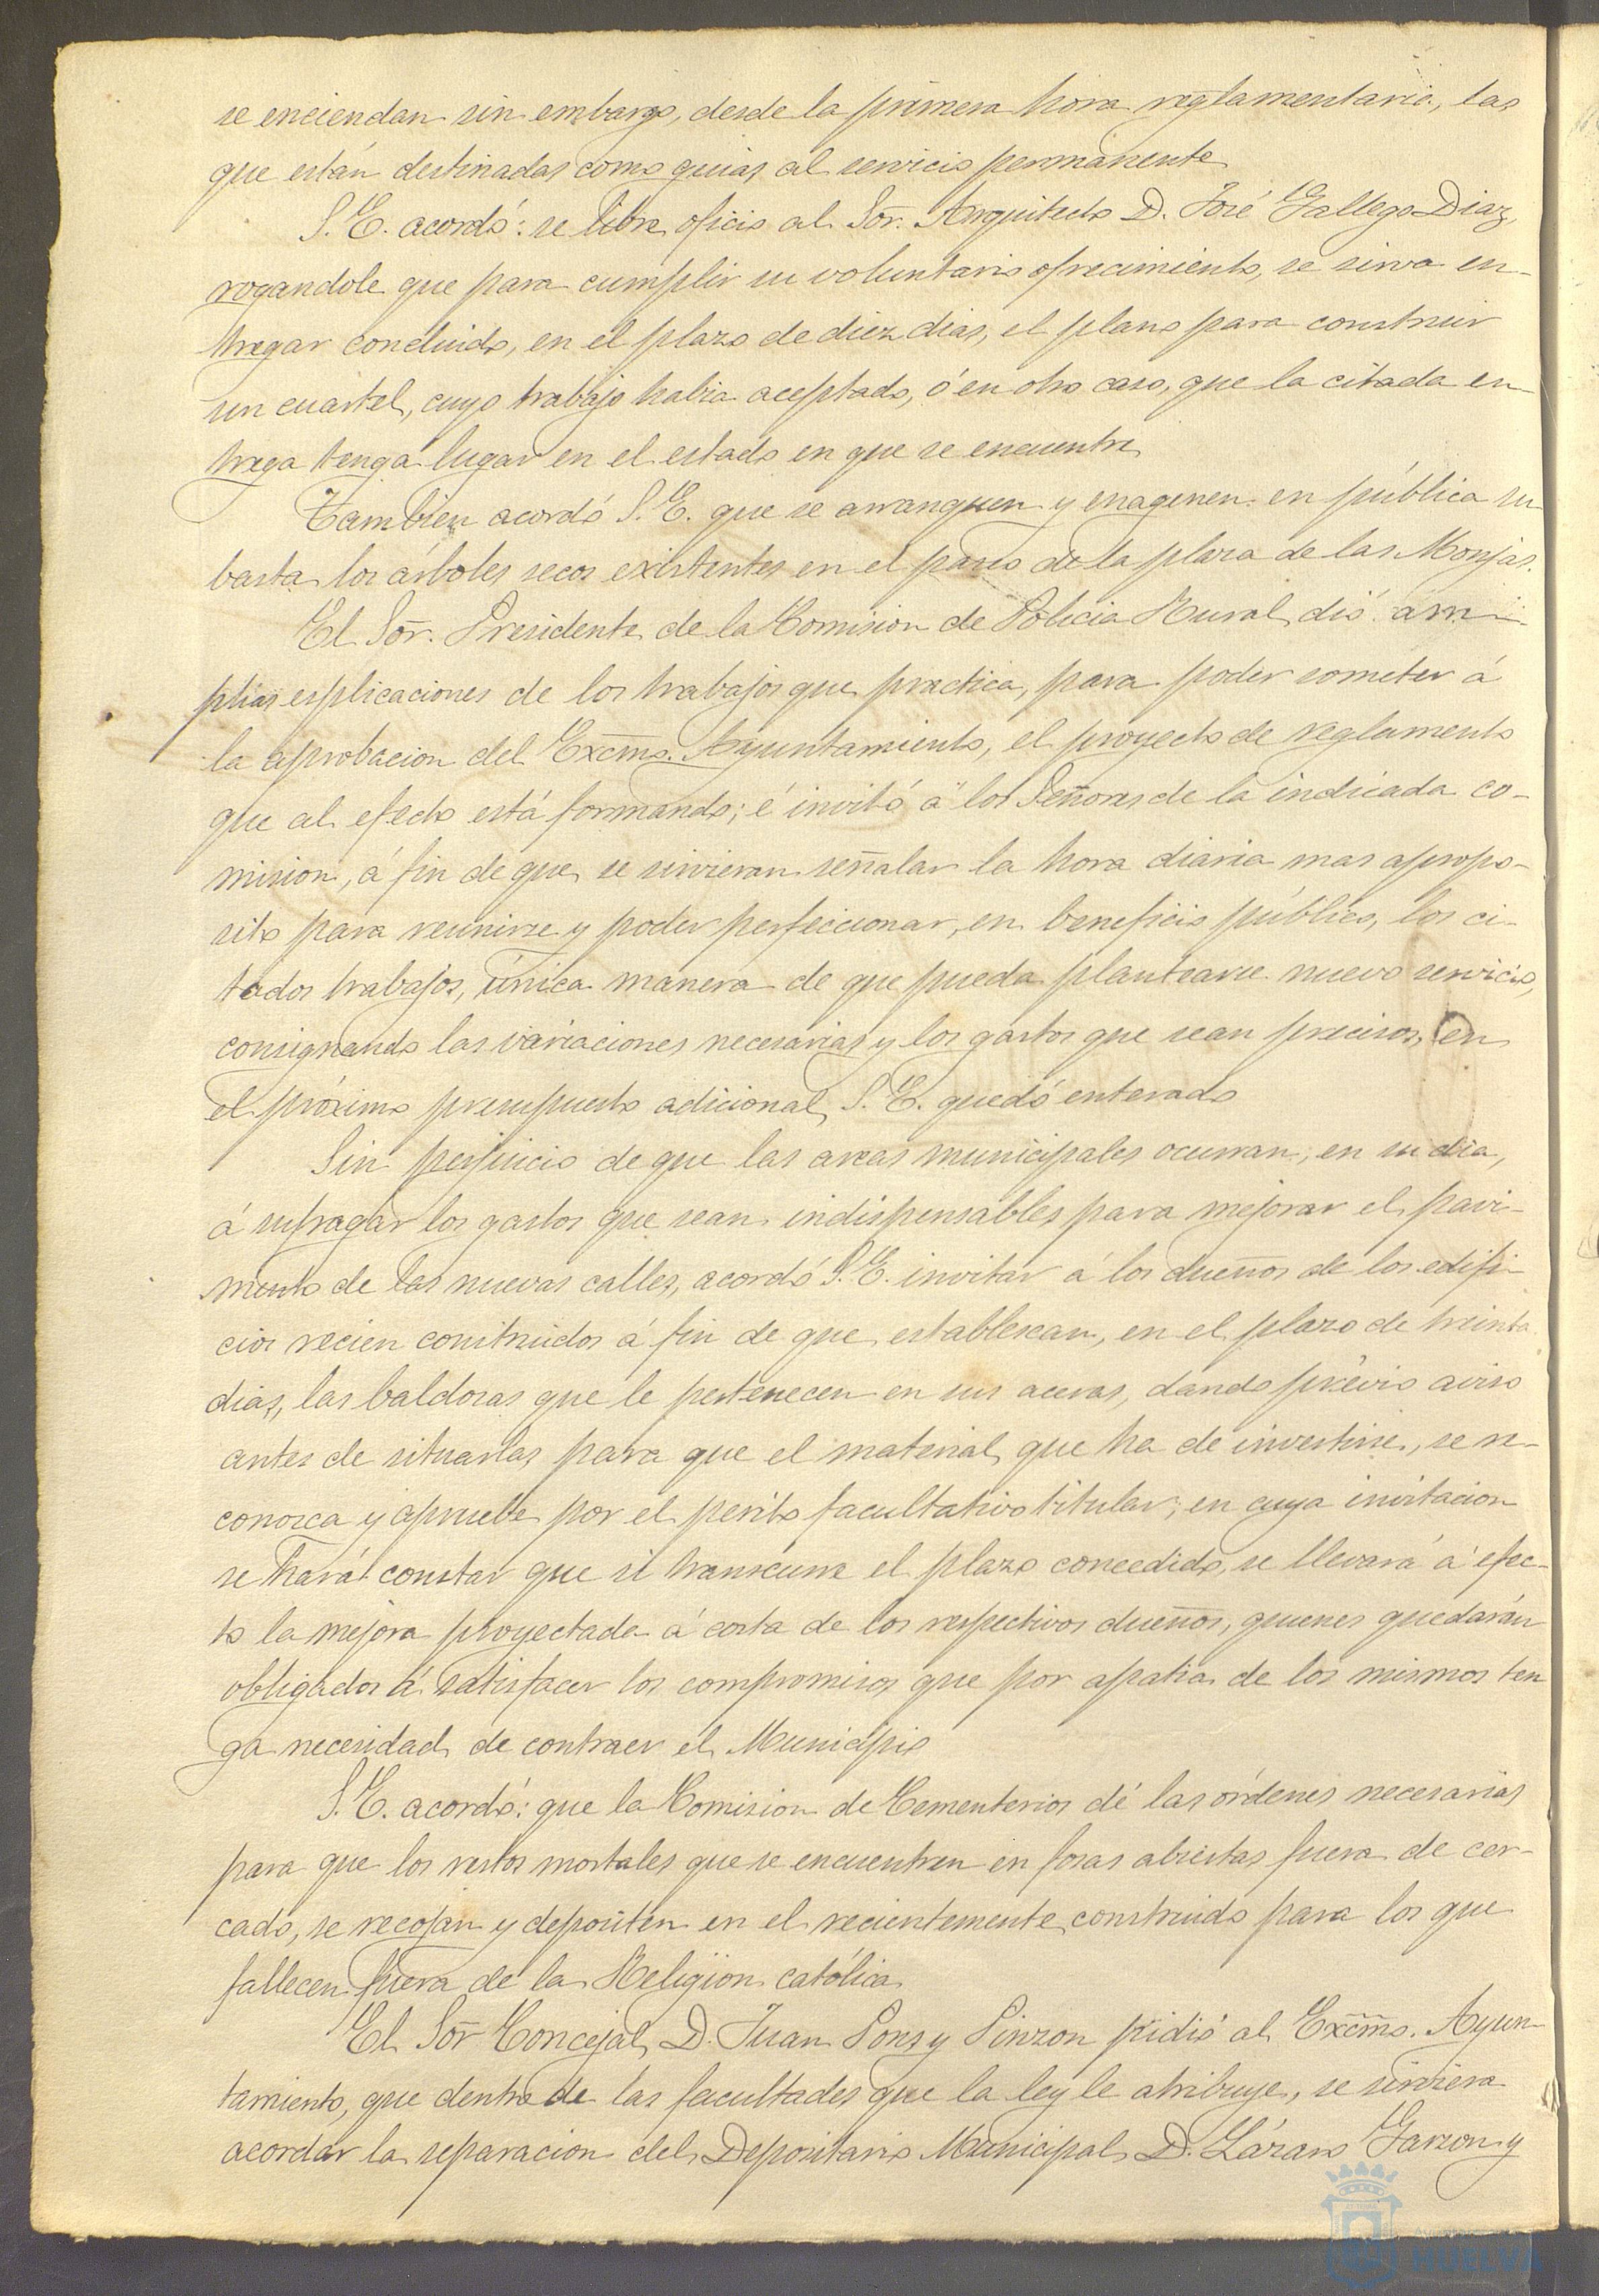 se enciendan sin embargo, desde la primera hora reglamentaria, las
que están destinadas como guias al servicio permanente
S. E. acordó: se libre oficio al Sor. Arquitecto D. José Gallego Diaz,
rogandole que para cumplir su voluntario ofrecimiento, se sirva en-
tregar concluido, en el plazo de diez dias, el plano para construir
un cuartel, cuyo trabajo habia aceptado, ó en otro caso, que la citada en-
trega tenga lugar en el estado en que se encuentre
Tambien acordó S. E. que se arranquen y enagenen en pública su-
basta los árboles secos existentes en el paseo de la plaza de las Monjas.
El Sor. Presidente de la Comision de Policia Rural dió am-
plias esplicaciones de los trabajos que practica, para poder someter á
la aprobacion del Excmo. Ayuntamiento, el proyecto de reglamento
que al efecto está formando; é invitó á los Señores de la indicada co-
mision, á fin de que se sirvieran señalar la hora diaria mas apropo-
sito para reunirse y poder perfeccionar, en beneficio público, los ci-
tados trabajos, única manera de que pueda plantearse nuevo servicio,
consignando las variaciones necesarias y los gastos que sean precisos, en
el próximo presupuesto adicional, S. E. quedó enterado
Sin perjuicio de que las arcas municipales ocurran, en su dia,
á sufragar los gastos que sean indispensables para mejorar el pavi-
mento de las nuevas calles, acordó S. E. invitar á los dueños de los edifi-
cios recien construidos á fin de que establescan, en el plazo de treinta
dias, las baldosas que le pertenecen en sus aceras, dando prévio aviso
antes de situarlas para que el material que ha de invertirse, se re-
conozca y apruebe por el perito facultativo titular; en cuya invitacion
se hará constar que si transcurre el plazo concedido, se llevará á efec-
to la mejora proyectada á costa de los respectivos dueños, quienes quedarán
obligados á satisfacer los compromisos que por apatia de los mismos ten
ga necesidad de contraer el Municipio
S. E. acordó: que la Comision de Cementerios dé las órdenes necesarias
para que los restos mortales que se encuentren en fosas abiertas fuera de cer-
cado, se recojan y depositen en el recientemente construido para los que
fallecen fuera de la Religion católica
El Sor Concejal D. Juan Pons y Pinzon pidió al Excmo. Ayun-
tamiento, que dentro de las facultades que la ley le atribuye, se sirviera
acordar la separacion del Depositario Municipal D. Lázaro Garzon y
HUELVA